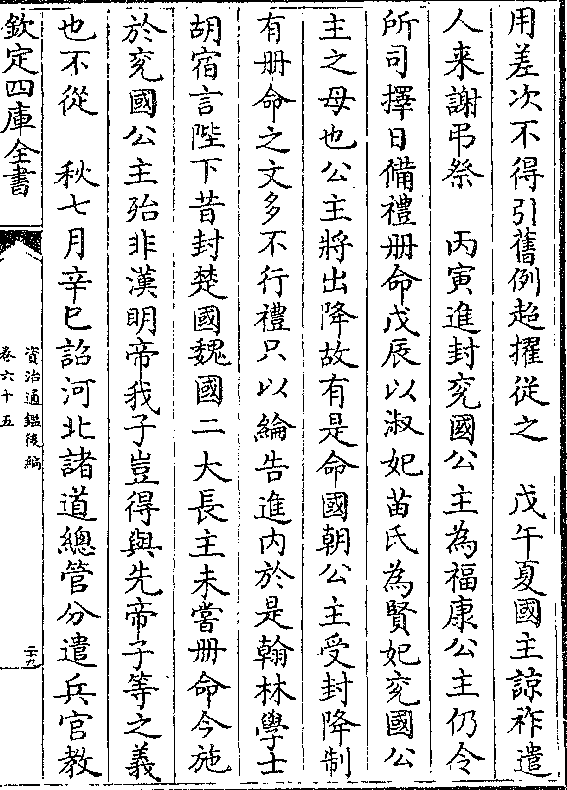 用差次不得引舊例超擢従之　戊午夏國主諒祚遣
人来謝弔祭　丙寅進封兖國公主為福康公主仍令
所司擇日備禮册命戊辰以淑妃苗氏為賢妃兖國公
主之母也公主將出降故有是命國朝公主受封降制
有册命之文多不行禮只以綸告進内於是翰林學士
胡宿言陛下昔封楚國魏國二大長主未嘗册命今施
於兖國公主殆非漢明帝我子豈得與先帝子等之義
也不從　秋七月辛巳詔河北諸道總管分遣兵官教
欽定四庫全書
資治通鑑後編
卷六十五
二十九